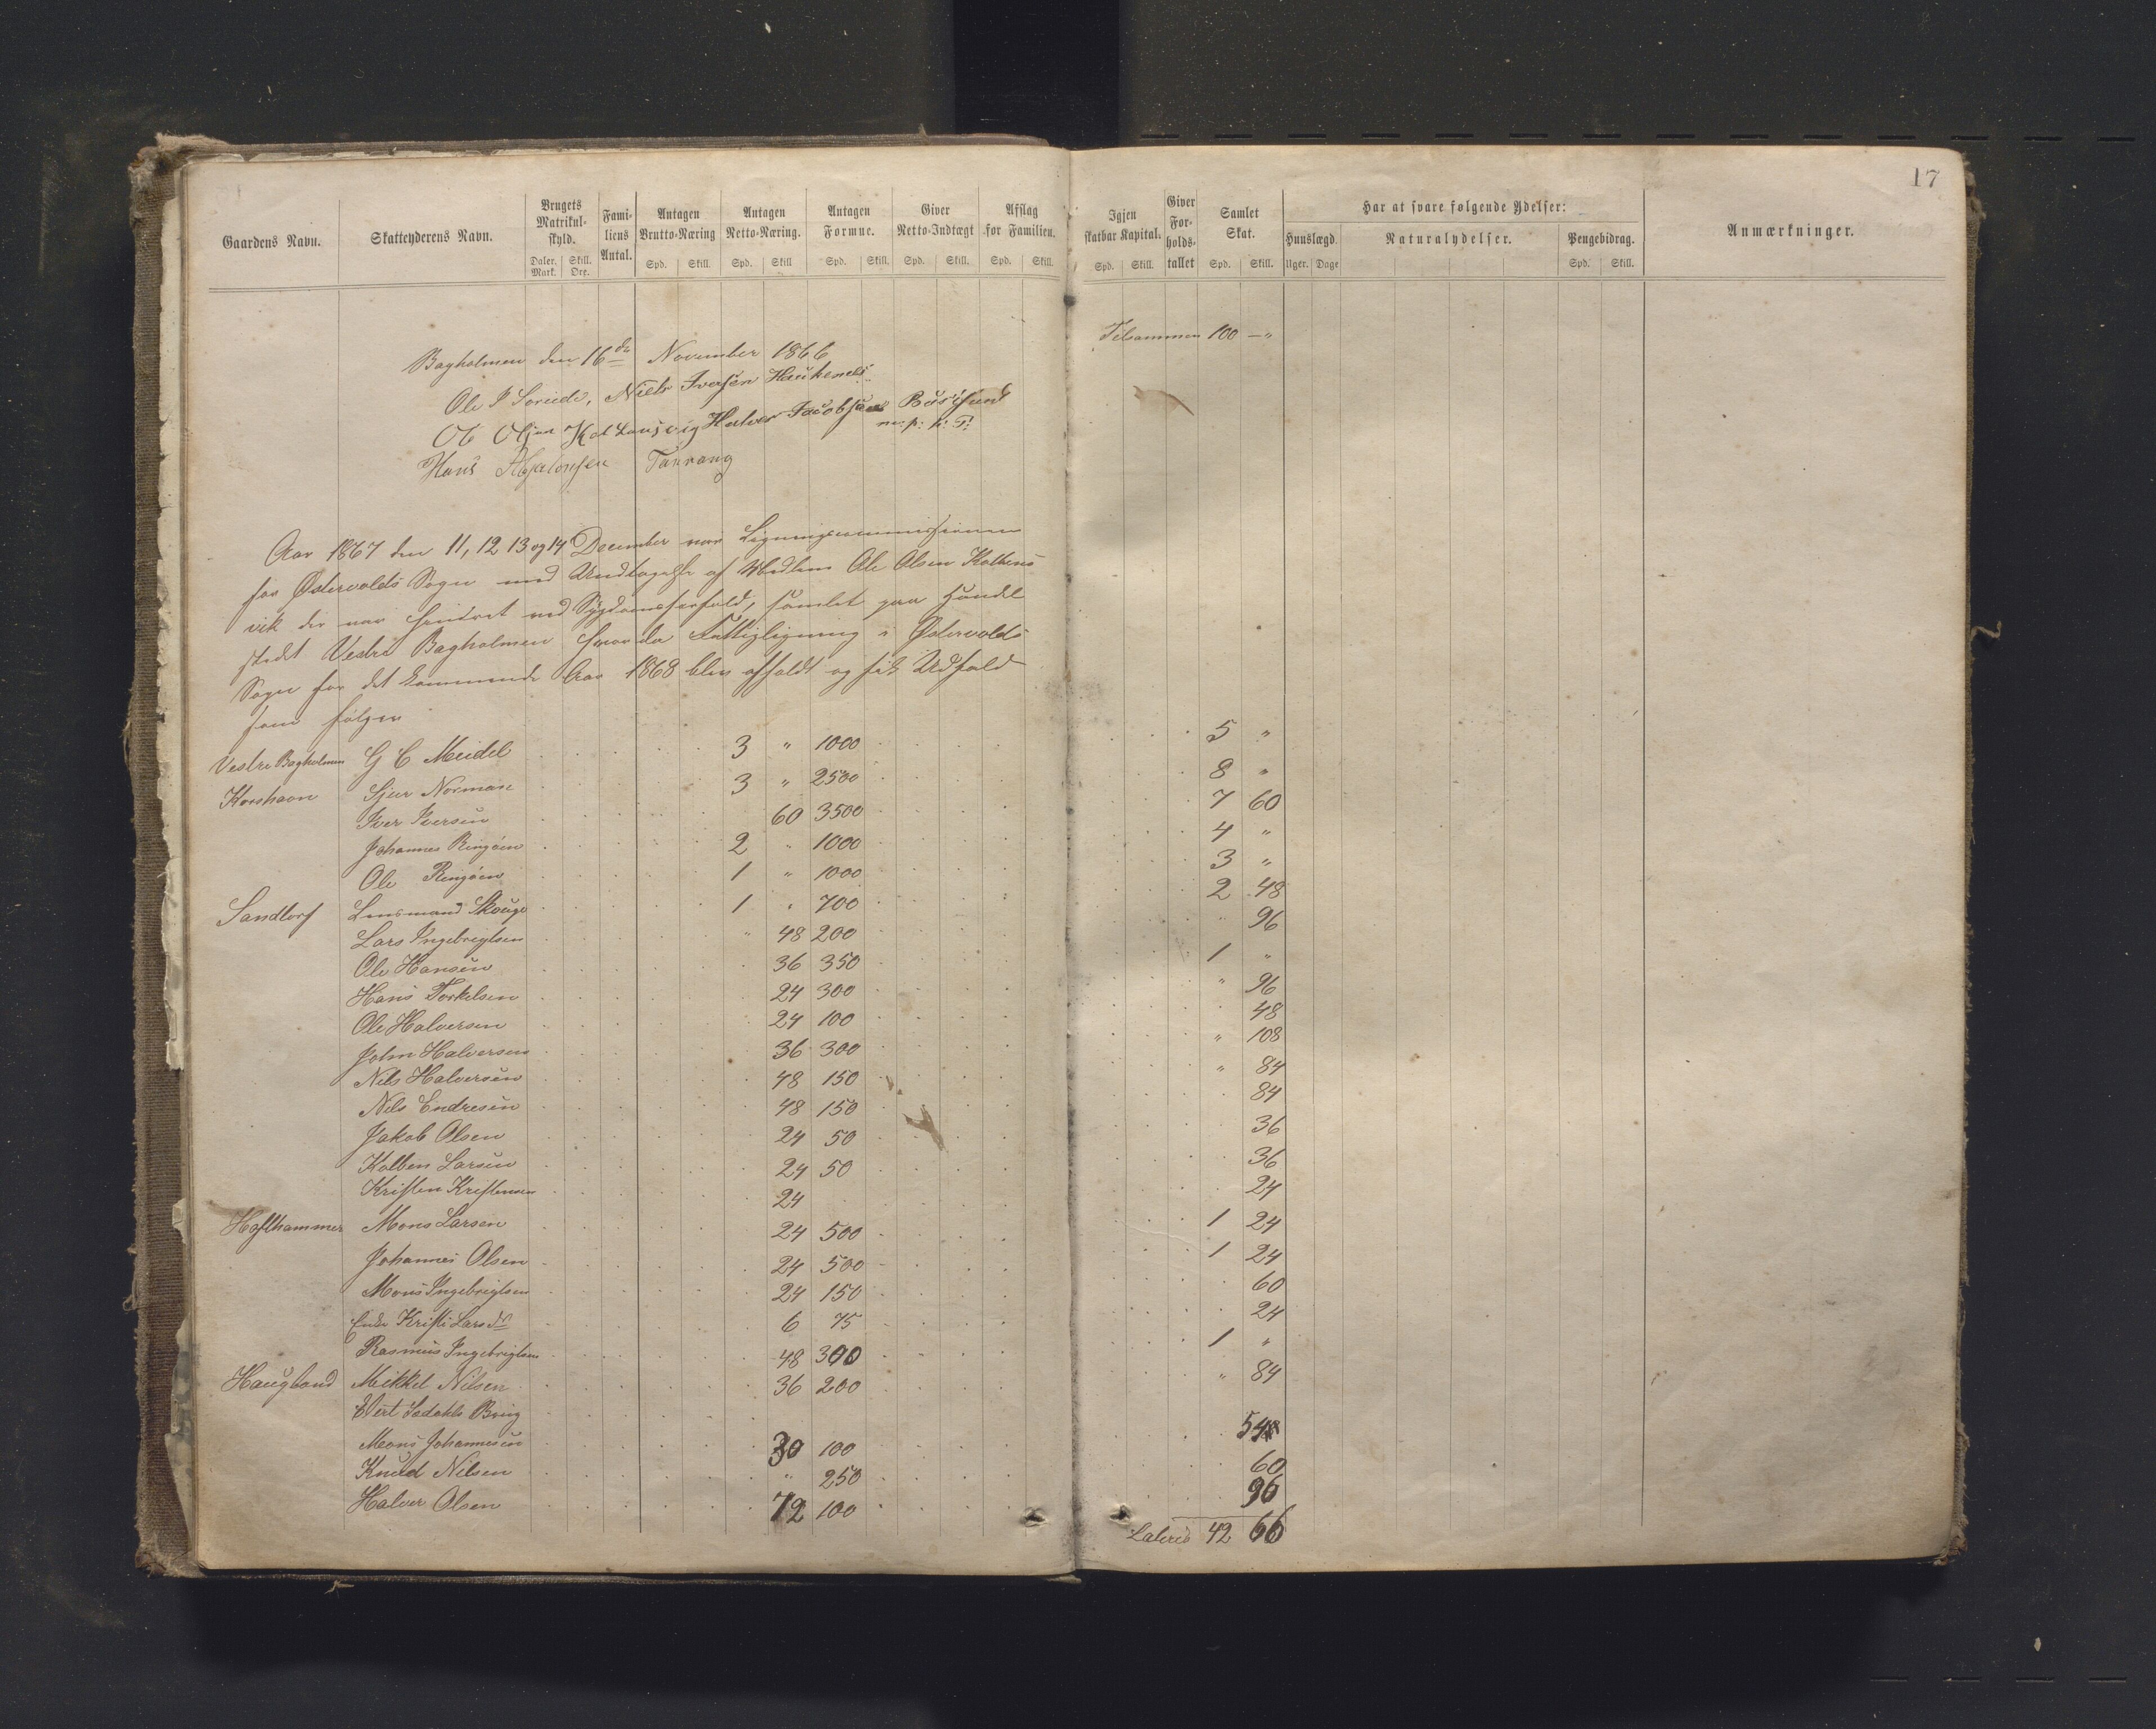 17
Gaardens Navn. Skatteyderens Navn. Brugets Matrikul-skyld. Fami-liens Antal. Antagen Brutto-Næring Antagen Netto-Næring. Antagen Formue. Giver Netto-Indtægt Afslag for Familien. Igjen skatbar Kapital. Giver For-holds-tallet Samlet Skat. Har at svare følgende Ydelser: Anmærkninger.
Hunslægd. Naturalydelser. Pengebidrag.
Daler. Mark. Skill. Øre. Spd. Skill. Spd. Skill Spd. Skill. Spd. Skill. Spd. Skill. Spd. Skill. Spd. Skill. Uger. Dage Spd. Skill.
Tilsammen 100 — "
Bagholmen den 16de November 1866
Ole P Soreide, Niels Iversen Haukenæs
Ol Olsen Halver Jacobsen
m: p: P:
Hans Absalonsen
Aar 1867 den 11, 12 13 og 14 December var Ligningscommissionen
for Østervolds Sogn med Undtagelse af Medlem Ole Olsen Kolbens
vik der var hindret ved Sygdomsforfald, samlet paa Handel
stedt Vestre Bagholmen hvor da Fattigligning i Østervolds
Sogn for det kommende Aar 1868 blev afholdt og fik Udfald
som følger
Vestre Bagholmen G C Meidel 3 " 1000 5 "
Korshavn Sjur Norman 3 " 2500 8 "
Iver Iversen 60 3500 7 60
Johannes Rengøen 2 " 1000 4 "
Ole Rengøen 1 " 1000 3 "
Sandtorf Lensmand Skouge 1 " 700 2 48
Lars Ingebregtsen " 48 200 " 96
Ole Hansen 36 350 1 "
Hans Torkelsen 24 300 " 96
Ole Halversen 24 100 48
John Halversen 36 300 " 108
Nils Halversen 48 150 " 84
Nils Endresen 48 150 84
Jakob Olsen 24 50 36
Kolben Larsen 24 50 36
Kristen Kristensen 24 24
Hosthammer Mons Larsen 24 500 1 24
Johannes Olsen 24 500 1 24
Mons Ingebregtsen 24 150 60
Enke Kristi Larsdr 6 75 24
Rasmus Ingebrigtsen 48 300 1 "
Haugland Mikkel Nilsen 36 200 " 84
Brug
Mons Johannesen 30 100 54
Knud Nilsen " 250 60
Halver Olsen 72 100 96
Lateres 42 66